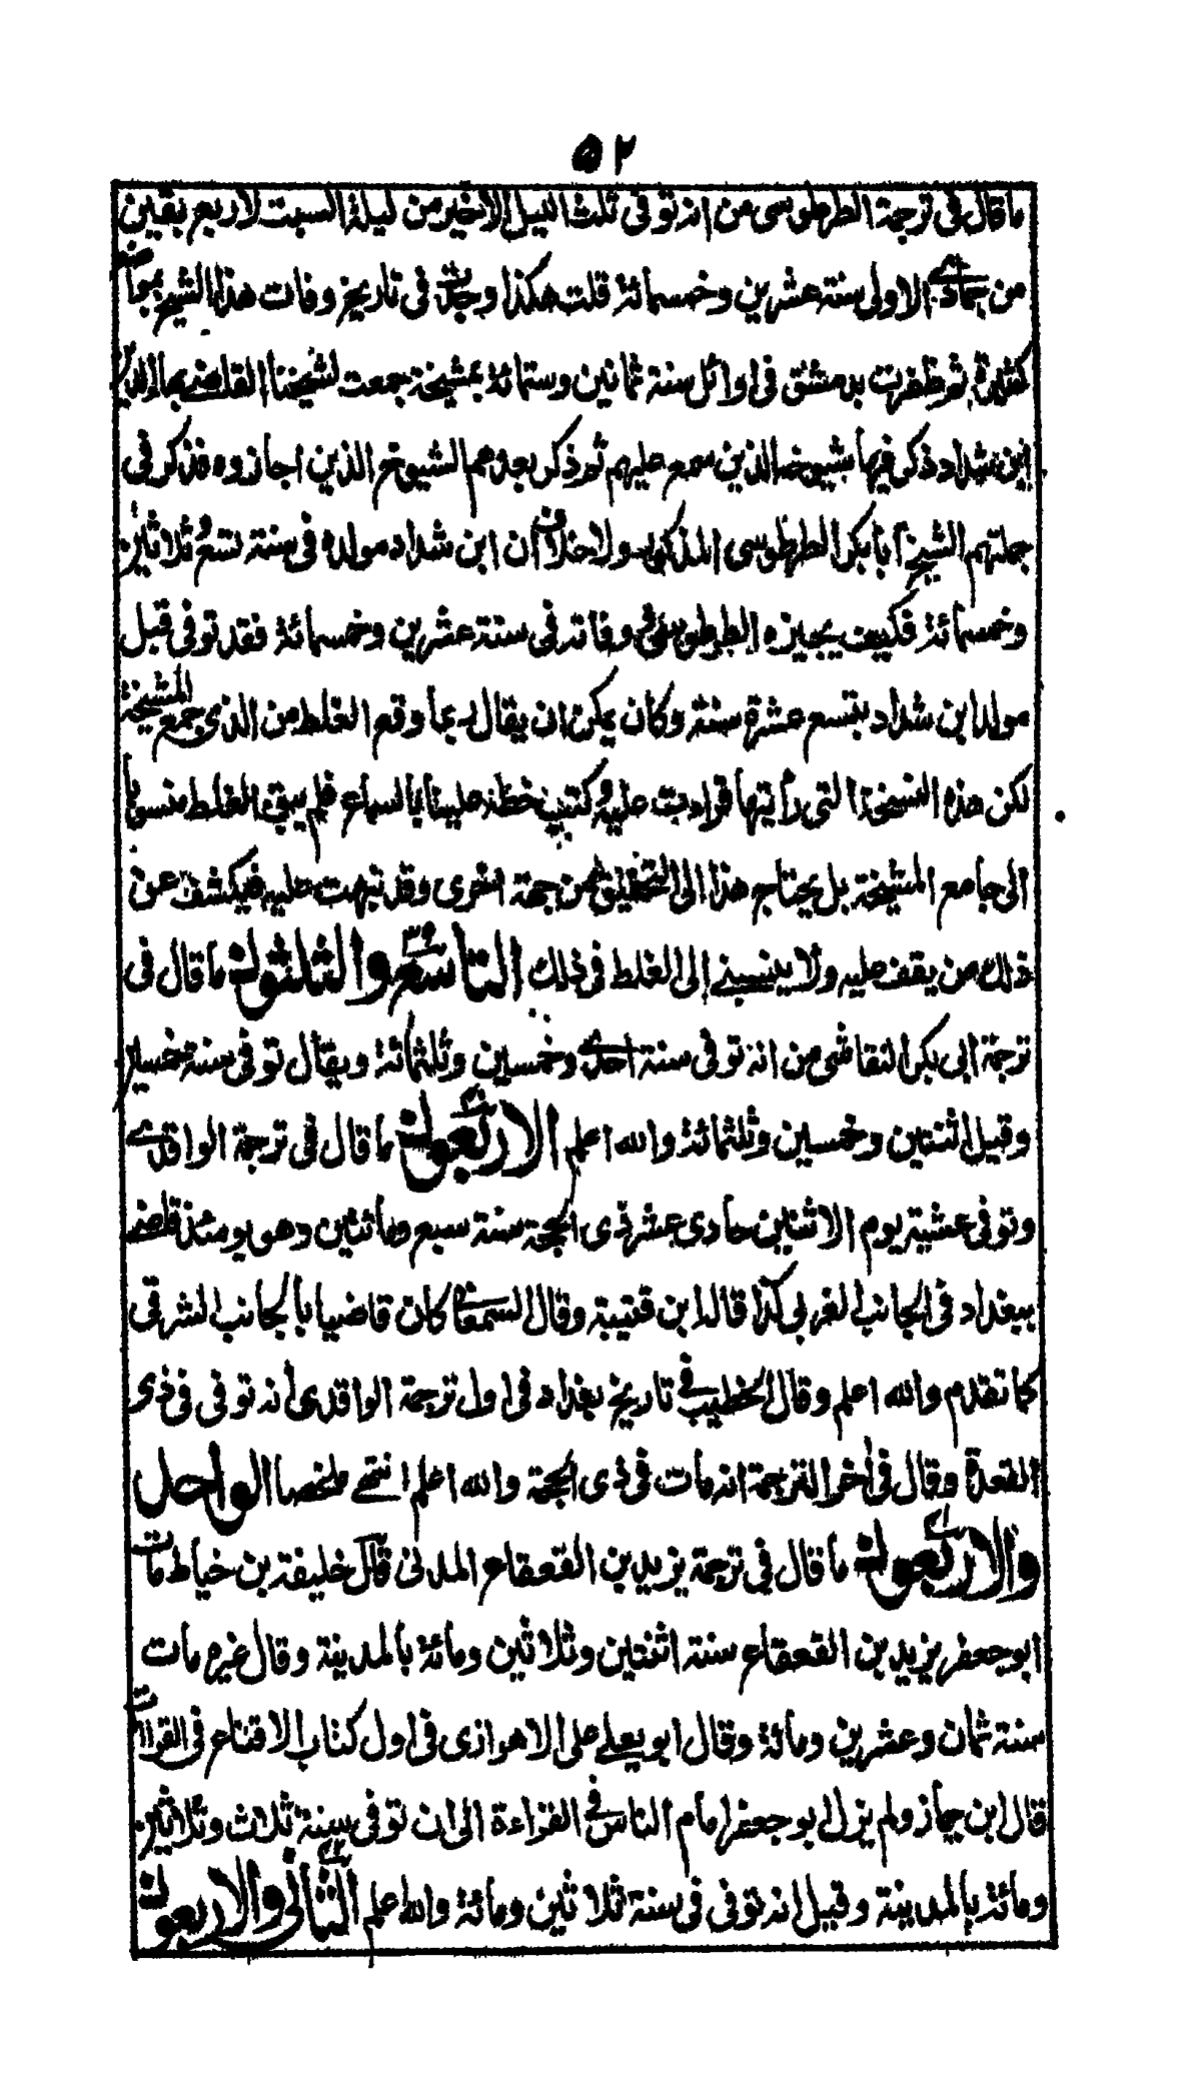 ٥٢
ما قال فى ترجمة الطرطوسى من انه توفى ثلث الليل الاخير من ليلة السبت لاربع بقين
من جمادى الاولى سنة عشرين وخمسمائة قلت هكذا وجدت فى تاريخ وفات هذا الشيخ بمواضع
كثيرة ثم ظفرت بدمشق فى اوائل سنة ثمانين وستمائة بمشيخة جمعت لشيخنا القاضى بهاء الدين
ابن شداد ذكر فيها شيوخه الذين سمع عليهم ثم ذكر بعدهم الشيوخ الذين اجازوه فذكر فى
جملتهم الشيخ أبا بكر الطرطوسى المذكور ولا خلاف ان ابن شداد مولده فى سنة تسع وثلاثين
وخمسمائة فكيف يجيزه الطرطوسى ووفاته فى سنة عشرين وخمسمائة فقد توفى قبل
مولد ابن شداد بتسع عشرة سنة وكان يمكن ان يقال ربما وقع الغلط من الذى جمع المشيخة
لكن هذه النسخة التى رأيتها قراءت عليه وكتب خطه عليها بالسماع فلم يبق الغلط منسوبا
الى جامع المشيخة بل يحتاج هذا الى التحقيق من جهة اخرى وقد نبهت عليه فيكشف عن
ذلك من يقف عليه ولا ينسبنى إلى الغلط فى ذلك التاسع والثلثون ٣٩ ما قال فى
ترجمة ابى بكر النقاش من انه توفى سنة احدى وخمسين وثلثمائة ويقال توفى سنة خمسين
وقيل اثنتين وخمسين وثلثمائة والله اعلم الاربعون ٤٠ ما قال فى ترجمة الواقدى
وتوفى عشية يوم الاثنين حادى عشر ذى الحجة سنة سبع ومائتين وهو يومئذ قاضى
ببغداد فى الجانب الغربى كذا قاله ابن قتيبة وقال السمعانى كان قاضيا بالجانب الشرقى
كما تقدم والله اعلم وقال الخطيب فى تاريخ بغداد فى اول ترجمة الواقدى أنه توفى فى ذى
القعدة وقال فى اخر الترجمة انه مات فى ذى الحجة والله اعلم انتهى ملخصا الواحد
والاربعون ٤١ ما قال فى ترجمة يزيد بن القعقاع المدنى قال خليفة بن خياط مات
ابو جعفر يزيد بن القعقاع سنة اثنتين وثلاثين ومائة بالمدينة وقال غيره مات
سنة ثمان وعشرين ومائة وقال ابو يعلى على الاهوازى فى اول كتاب الاقناع فى القراات
قال ابن جماز ولم يزل ابو جعفر امام الناس فى القراءة الى ان توفى سنة ثلاث وثلاثين
ومائة بالمدينة وقيل انه توفى فى سنة ثلاثين ومائة والله اعلم الثانى والاربعون ٤٢